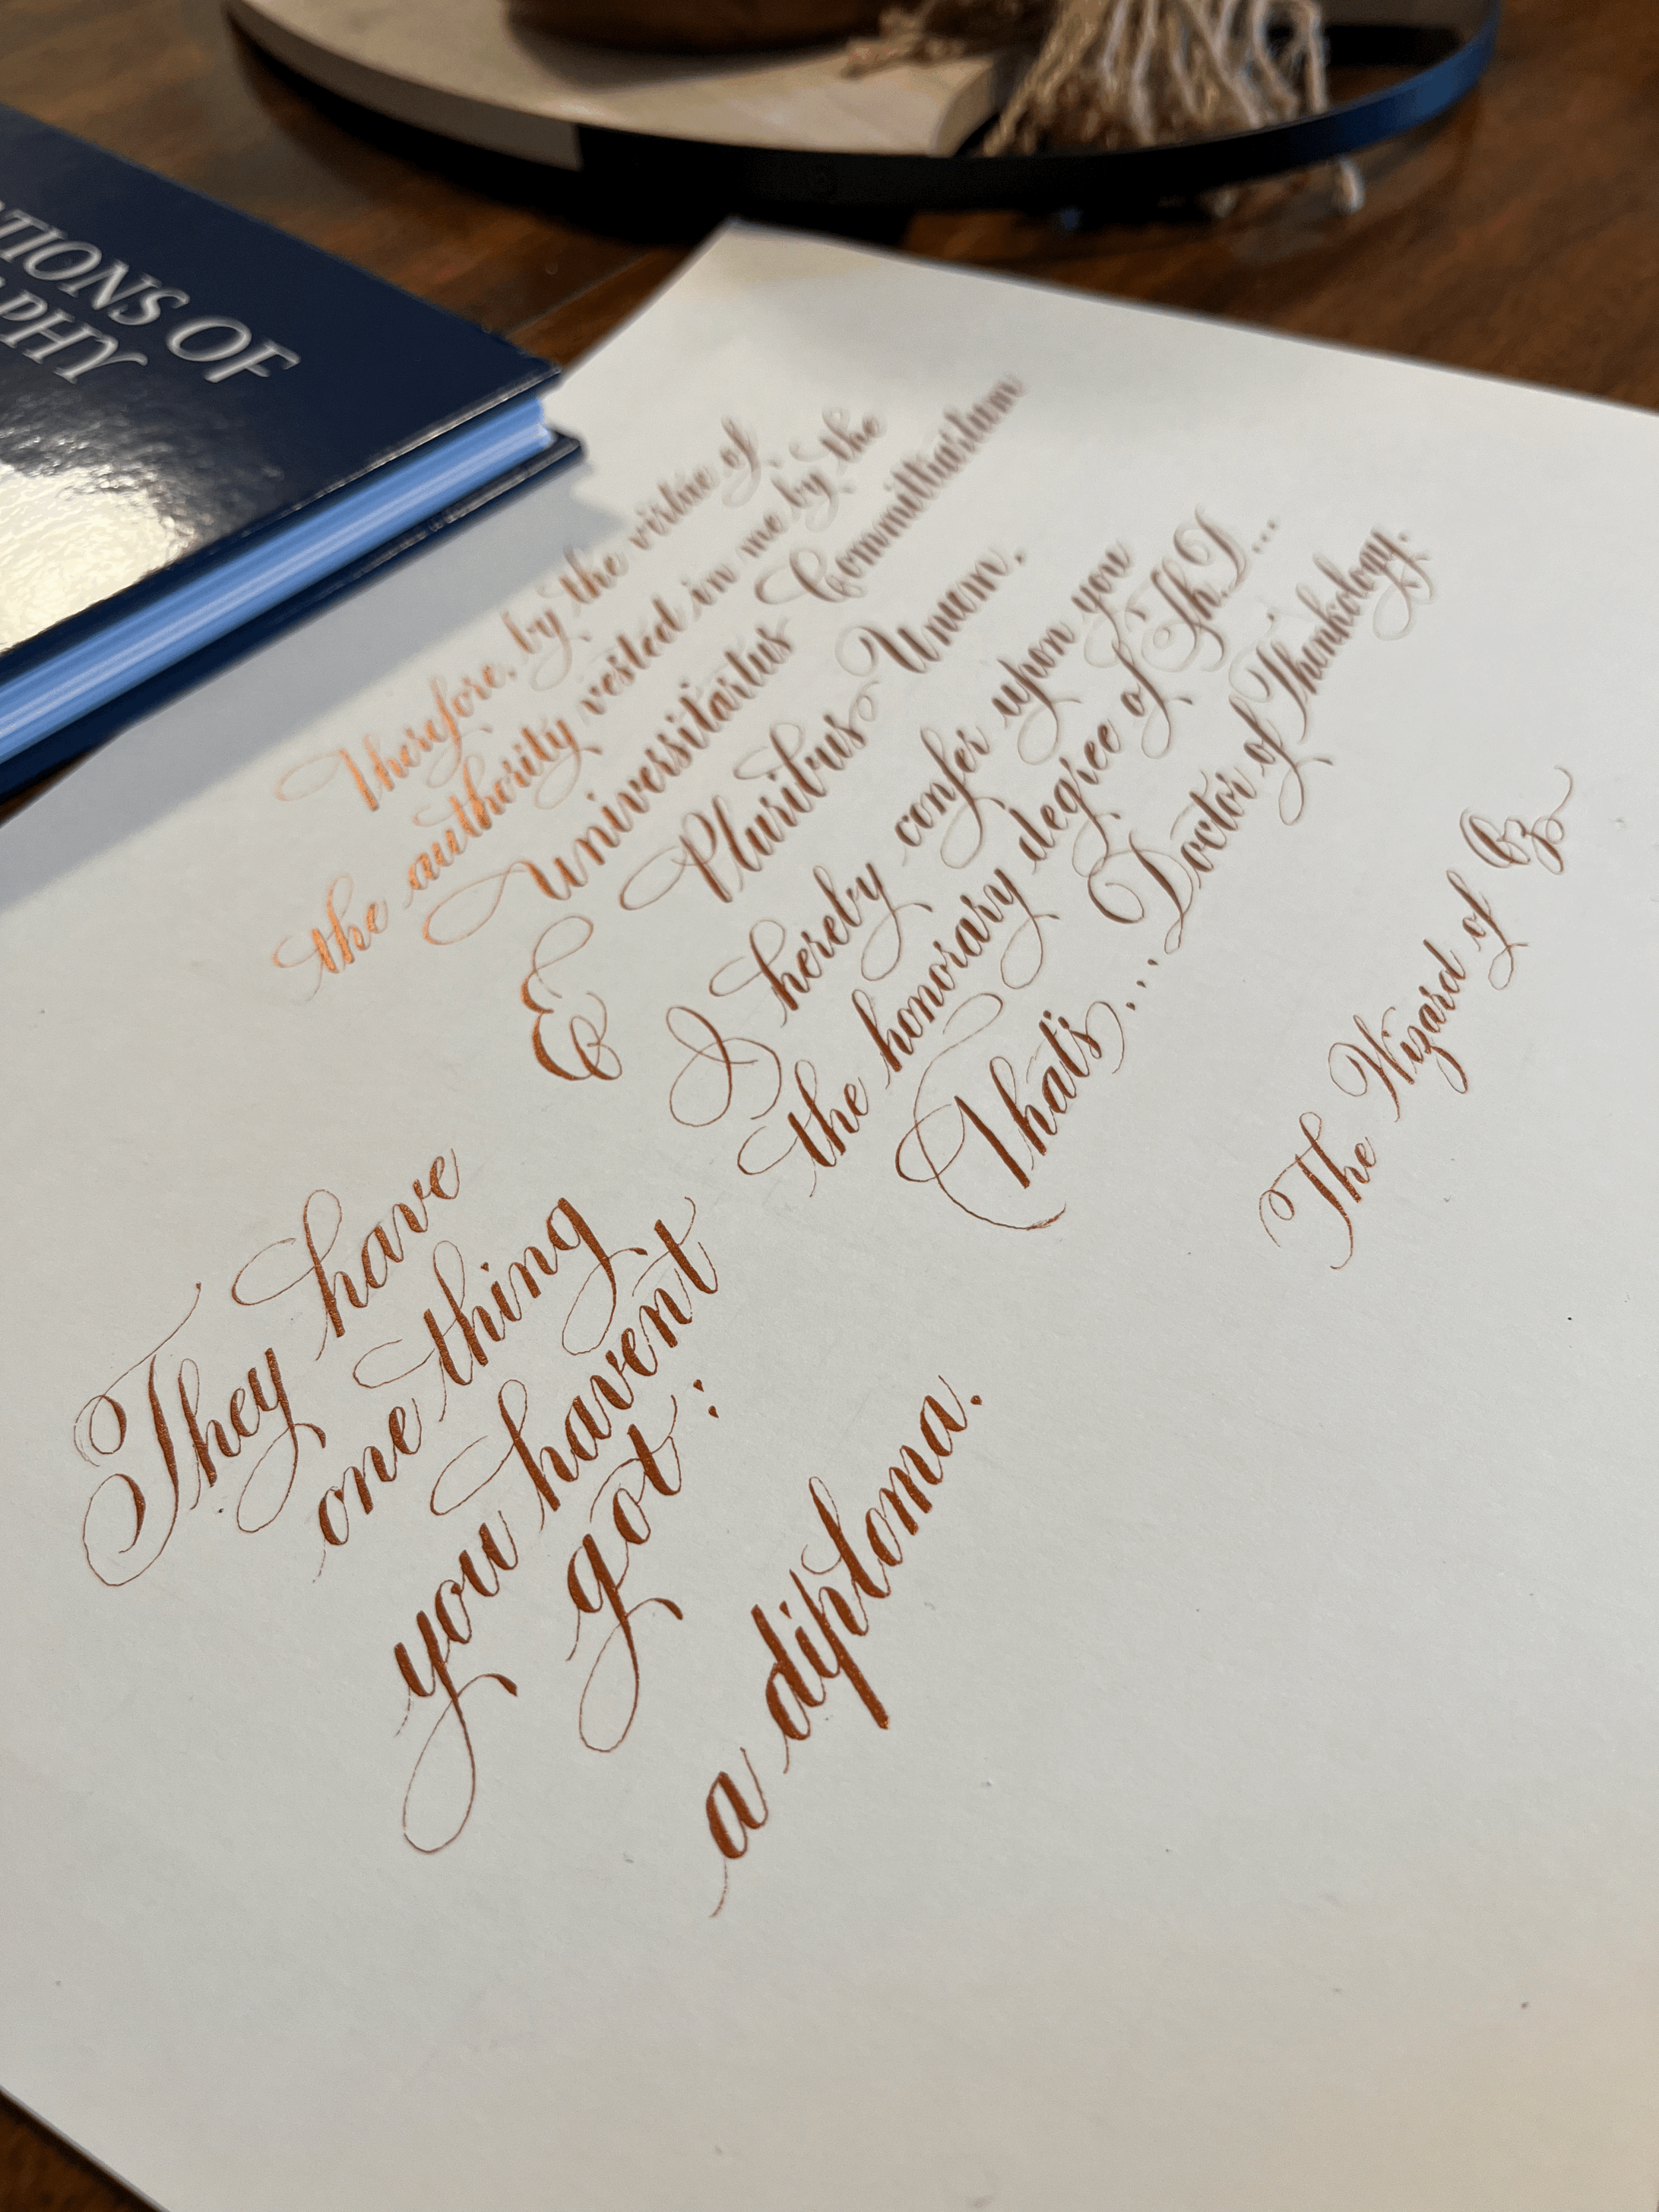 TIONS OF
APHY
They have
one thing
you havent
got :
a diploma.
Therefore, by the virtue of,
the authority vested in me by the
Universitartus Committiartum
E Pluribus Unum,
I hereby confer upon you
the honorary degree of Th.D...
That's... Doctor of Thinkology.
The Wizard of Oz